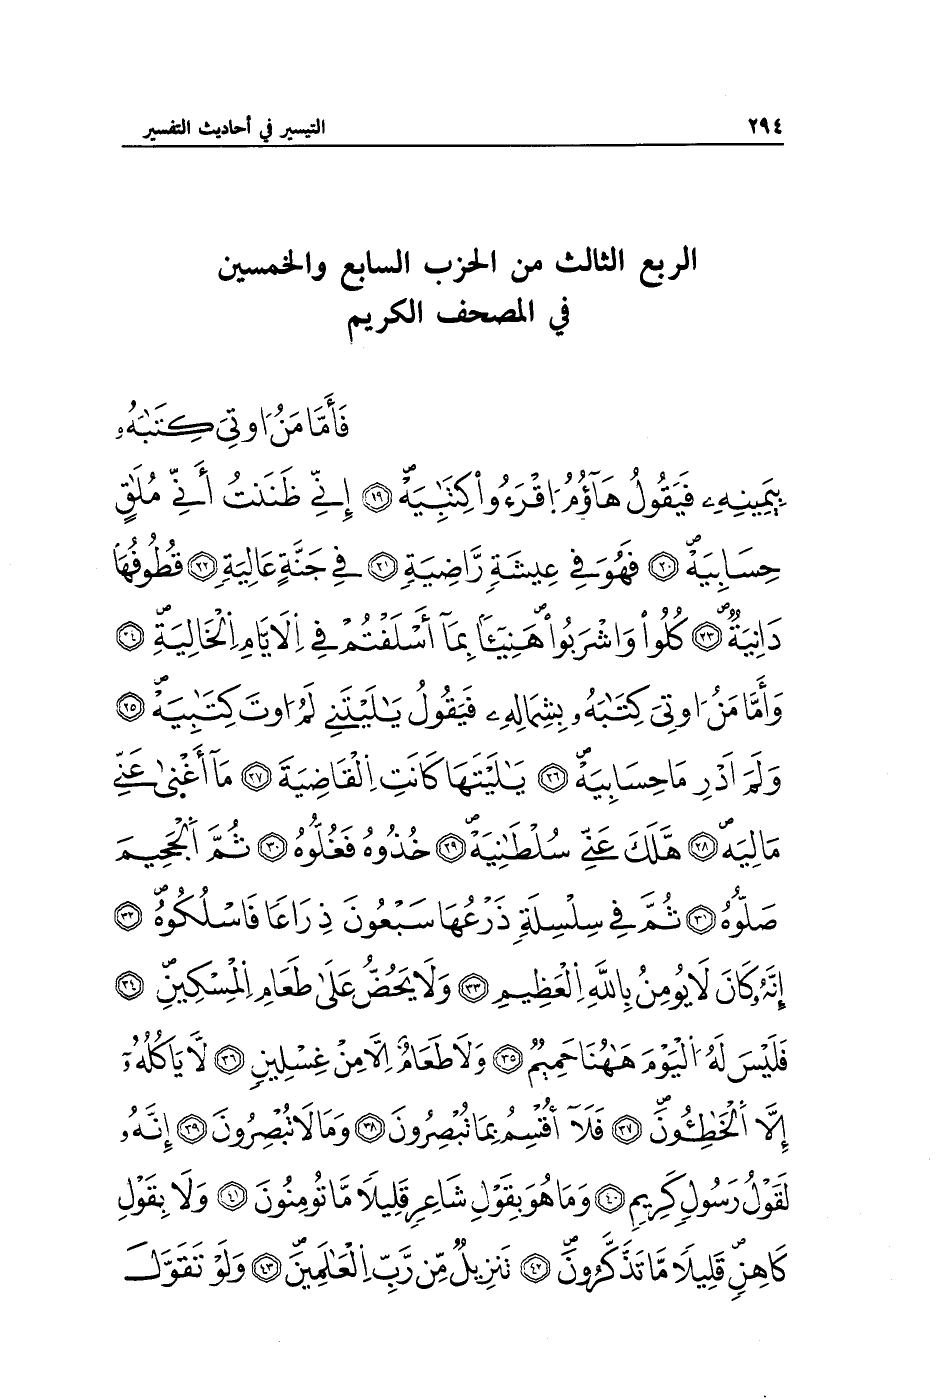 ٢٩٤ التيسير في أحاديث التفسير
الربع الثالث من الحزب السابع والخمسين
في المصحف الكريم
فَأَمَّا مَنُ ا۟وتِيَ كِتَٰبَهُۥ
بِيَمِينِهِۦ فَيَقُولُ هَآؤُمُ اُ۪قْرَءُوا۟ كِتَٰبِيَهْۖ ١٩ إِنِّي ظَنَنتُ أَنِّي مُلَٰقٍ
حِسَابِيَهْۖ ٢٠ فَهُوَ فِي عِيشَةٍ رَّاضِيَةٍ ٢١ فِي جَنَّةٍ عَالِيَةٍ ٢٢ قُطُوفُهَا
دَانِيَةٌۖ ٢٣ كُلُوا۟ وَاشْرَبُوا۟ هَنِيٓـًٔاۢ بِمَآ أَسْلَفْتُمْ فِي اِ۬لَايَّامِ اِ۬لْخَالِيَةِۖ ٢٤
وَأَمَّا مَنُ ا۟وتِيَ كِتَٰبَهُۥ بِشِمَالِهِۦ فَيَقُولُ يَٰلَيْتَنِي لَمُ ا۟وتَ كِتَٰبِيَهْۖ ٢٥
وَلَمَ اَدْرِ مَا حِسَابِيَهْۖ ٢٦ يَٰلَيْتَهَا كَانَتِ اِ۬لْقَاضِيَةَ ٢٧ مَآ أَغْنَىٰ عَنِّي
مَالِيَهْۖ ٢٨ هَّلَكَ عَنِّي سُلْطَٰنِيَهْۖ ٢٩ خُذُوهُ فَغُلُّوهُ ٣٠ ثُمَّ اَ۬لْجَحِيمَ
صَلُّوهُۖ ٣١ ثُمَّ فِي سِلْسِلَةٍ ذَرْعُهَا سَبْعُونَ ذِرَاعًا فَاسْلُكُوهُۖ ٣٢
إِنَّهُۥ كَانَ لَا يُومِنُ بِاللَّهِ اِ۬لْعَظِيمِ ٣٣ وَلَا يَحُضُّ عَلَىٰ طَعَامِ اِ۬لْمِسْكِينِۖ ٣٤
فَلَيْسَ لَهُ اُ۬لْيَوْمَ هَٰهُنَا حَمِيمٌ ٣٥ وَلَا طَعَامٌ اِلَّا مِنْ غِسْلِينٍ ٣٦ لَّا يَاكُلُهُۥٓ
إِلَّا اَ۬لْخَٰطِـُٔونَۖ ٣٧ فَلَآ أُقْسِمُ بِمَا تُبْصِرُونَ ٣٨ وَمَا لَا تُبْصِرُونَ ٣٩ إِنَّهُۥ
لَقَوْلُ رَسُولٍ كَرِيمٍ ٤٠ وَمَا هُوَ بِقَوْلِ شَاعِرٍ قَلِيلًا مَّا تُومِنُونَ ٤١ وَلَا بِقَوْلِ
كَاهِنٍۖ قَلِيلًا مَّا تَذَّكَّرُونَۖ ٤٢ تَنزِيلٌ مِّن رَّبِّ اِ۬لْعَٰلَمِينَۖ ٤٣ وَلَوْ تَقَوَّلَ